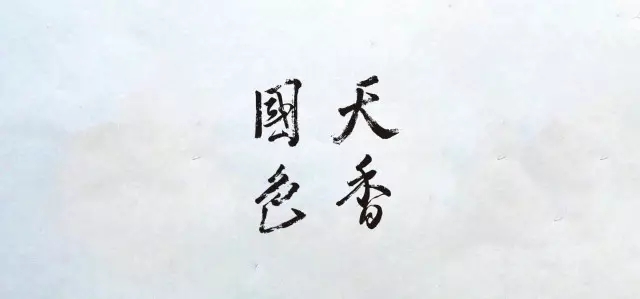 天香
國色